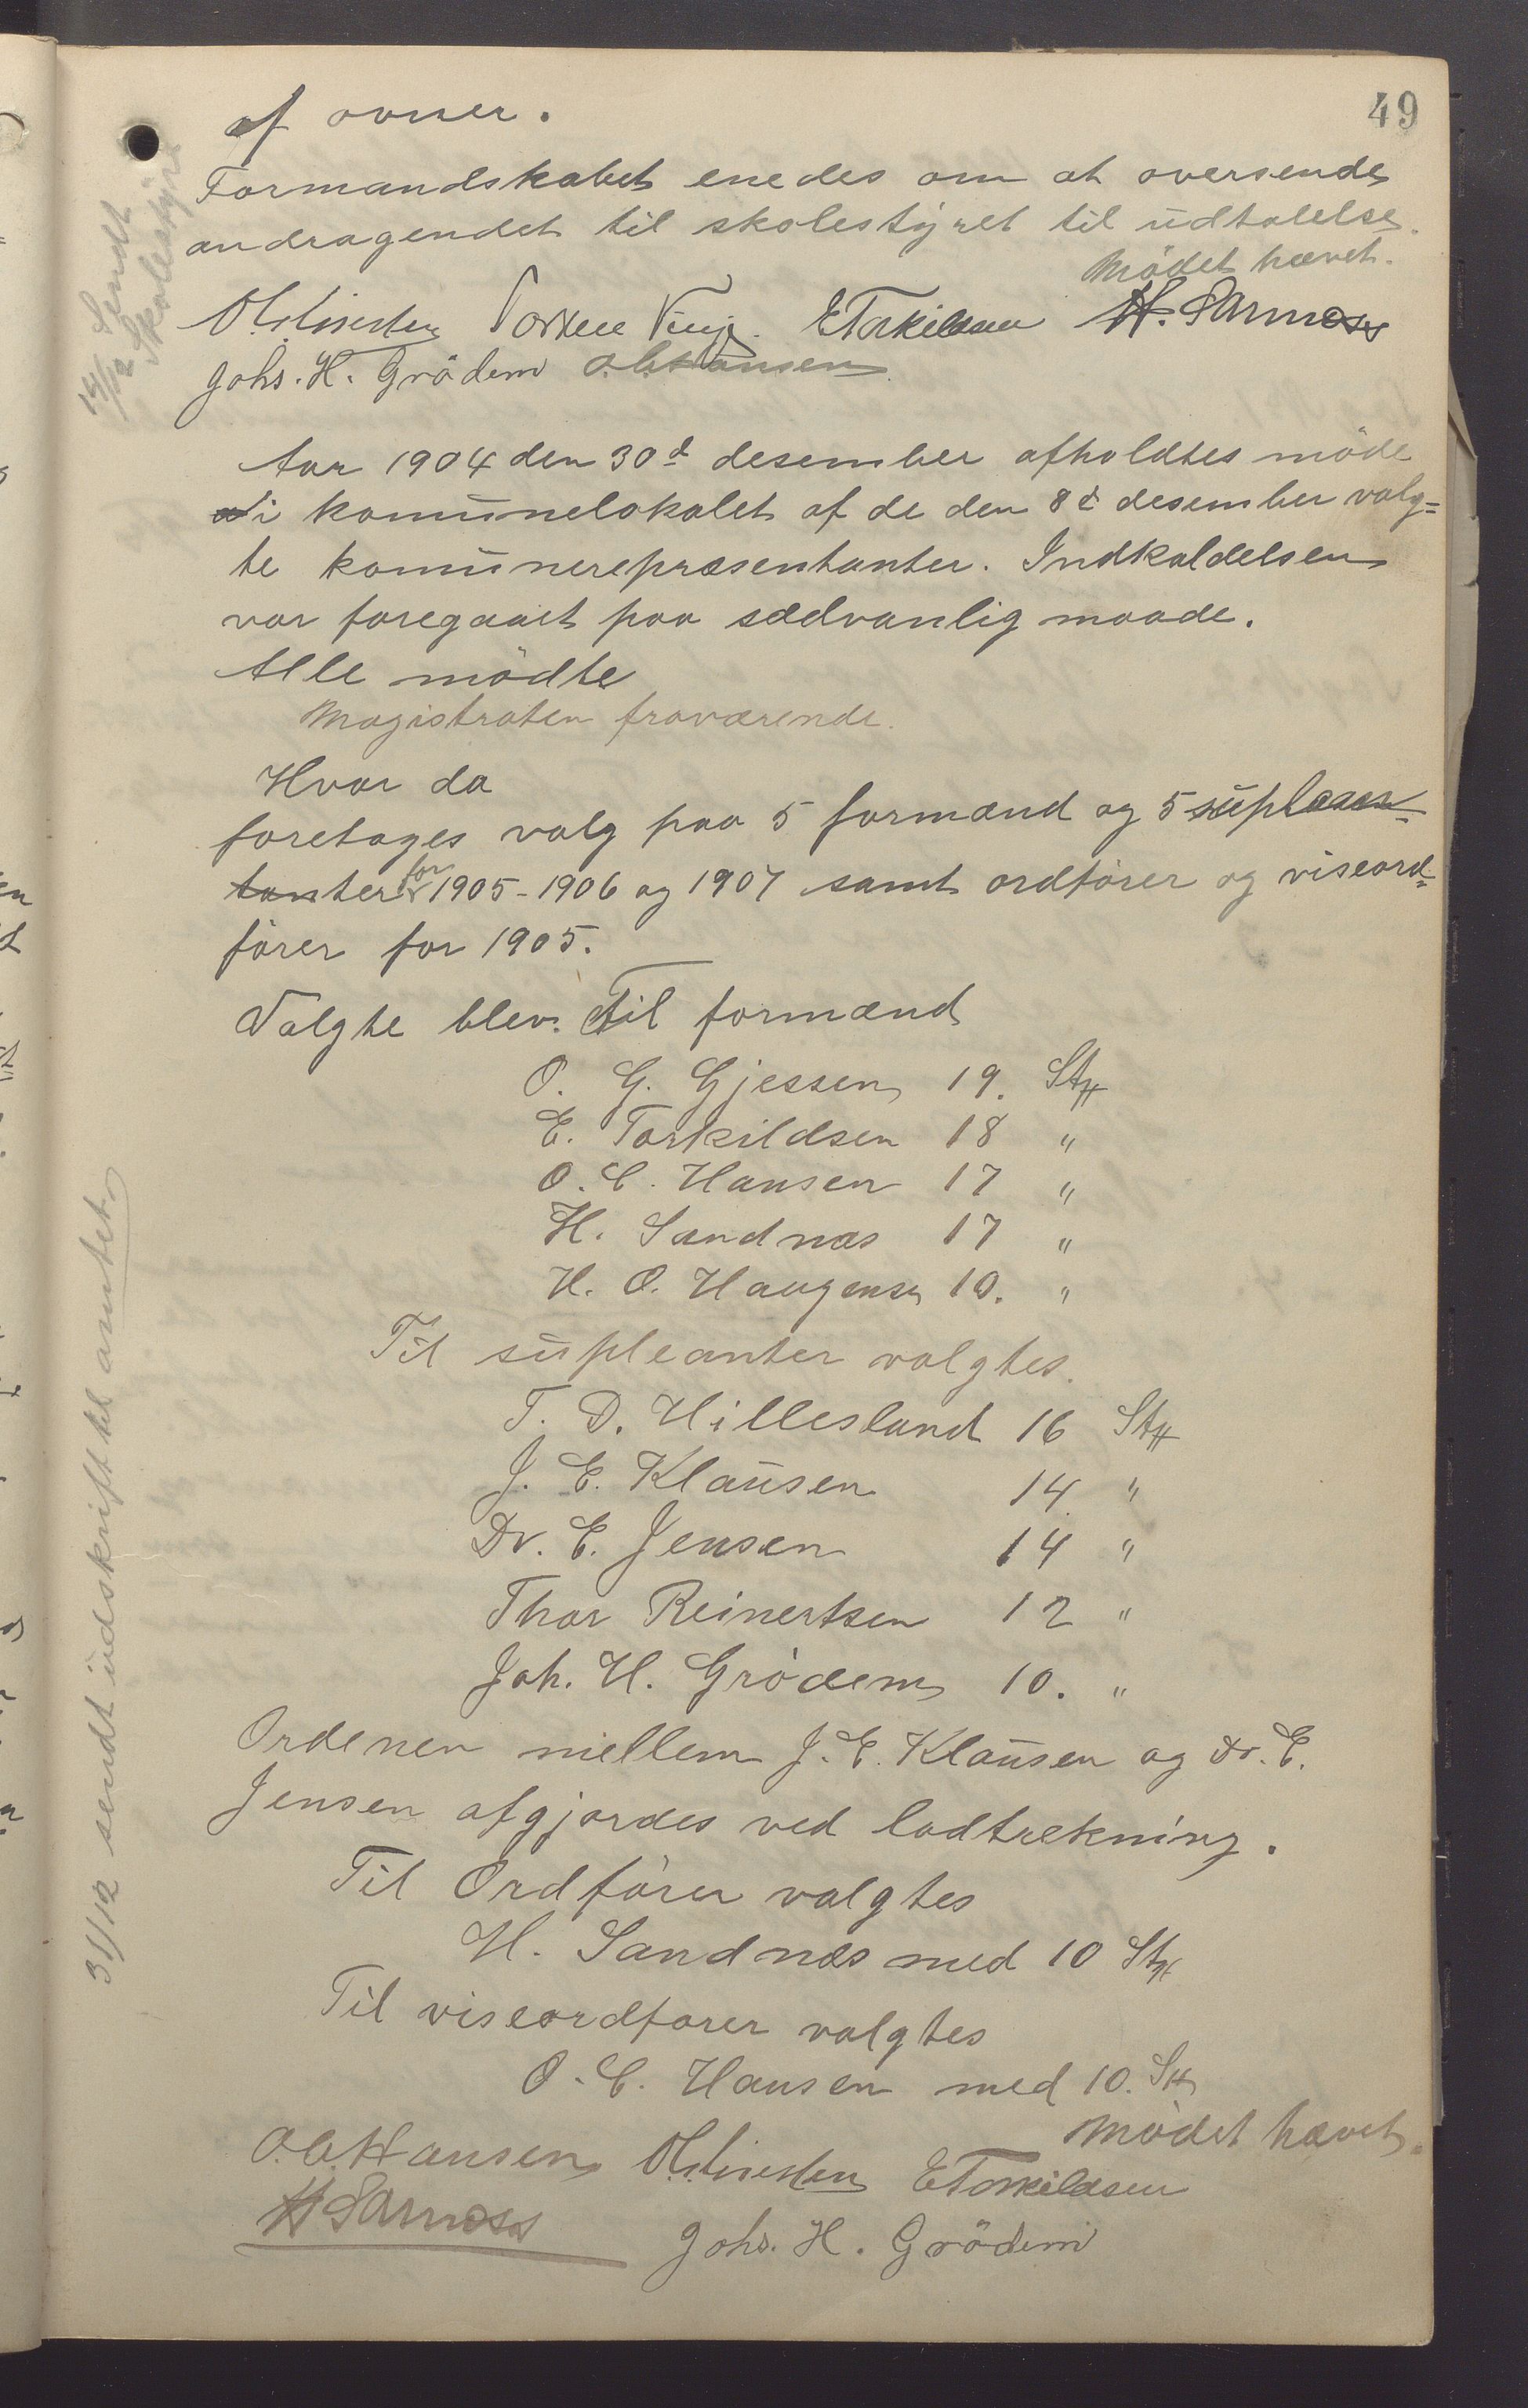 49
af ovner.
Formandskabet enedes om at oversende
andragendet til skolestyret til udtalelse.
Mödet hævet.
E Torkildsen H. Sandness
Johs. H. Grödem O. C. Hansen
14/12 Sendt
Skolestyret
Aar 1904 den 30d desember afholdtes möde
i komunelokalet af de den 8d desember valg=
te komunerepræsentanter. Indkaldelsen
var foregaaet paa sædvanlig maade.
Alle mödte
Magistraten fraværende.
Hvor da
foretages valg paa 5 formænd og 5 suplean=
ter for 1905-1906 og 1907 samt ordförer og viseord=
förer for 1905.
Valgte blev. Til formænd
O. G. Gjessen 19. St
E. Torkildsen 18 "
O. C. Hansen 17 "
H. Sandnæs 17 "
H. O. Haugensen 10. "
Til supleanter valgtes.
T. D. Hillesland 16 St
J. E. Klausen 14 "
Dr. E. Jensen 14 "
Thor Reinertsen 12 "
Joh. H. Grödem 10. "
Ordenen mellem J. E. Klausen og dr. E.
Jensen afgjordes ved lodtrekning.
Til Ordförer valgtes
H. Sandnæs med 10 St
Til viseordfører valgtes
O. C. Hansen med 10. St
Mödet hævet.
O. C. Hansen E Torkildsen
H Sandness Johs. H. Grödem
31/12 sendt udskrift til amtet.